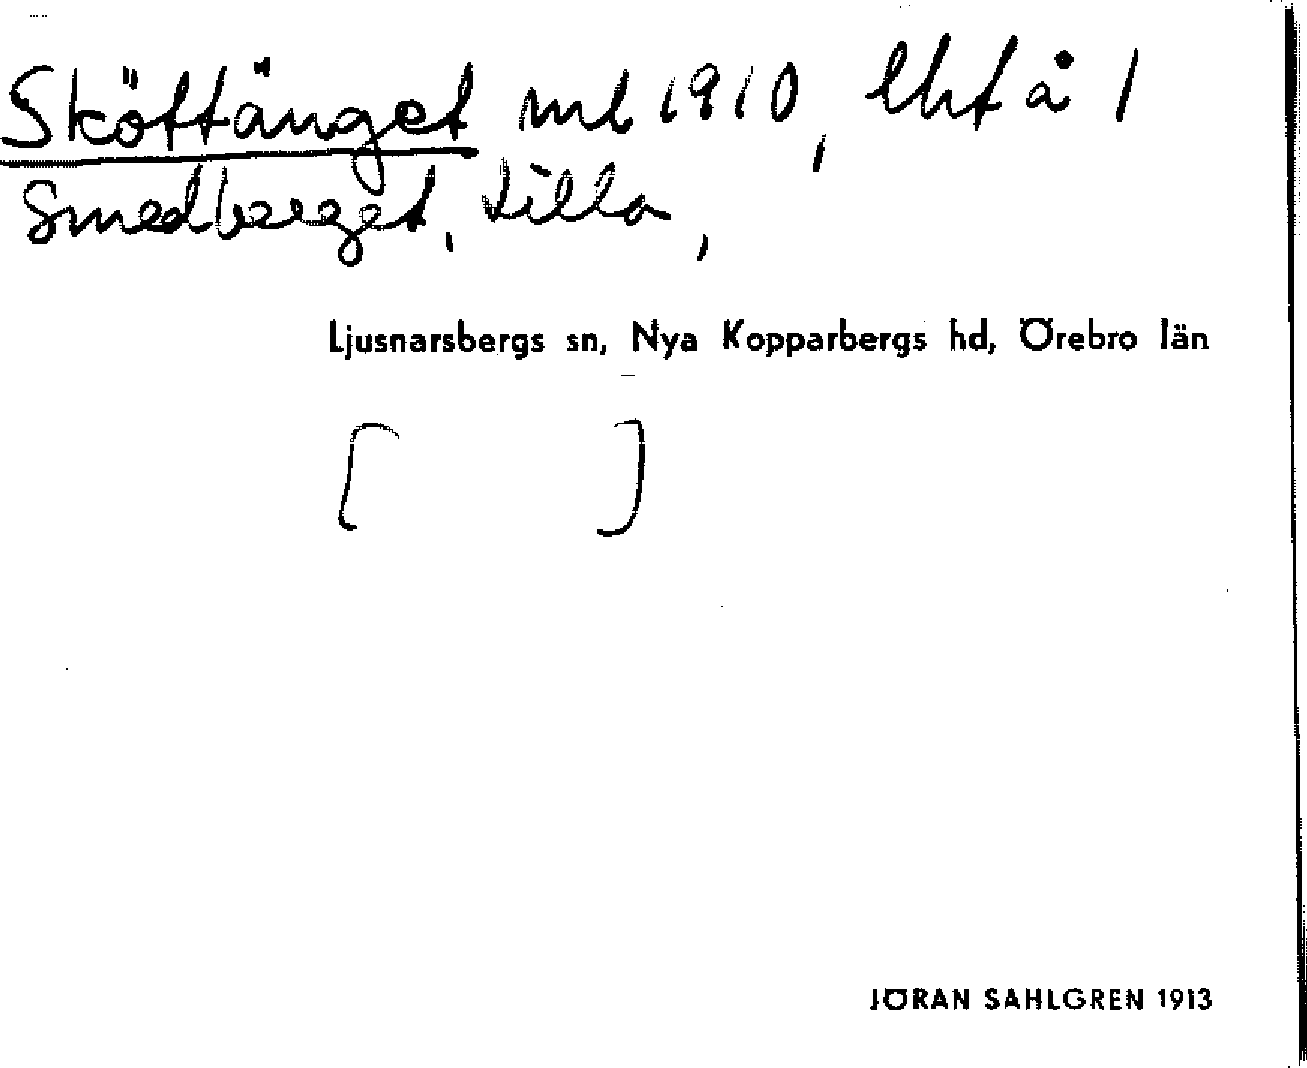 Sköttänget ml 1910, lht å 1
Smedberget, Lilla,
Ljusnarsbergs sn, Nya Kopparbergs hd, Örebro län
[ ]
JÖRAN SAHLGREN 1913